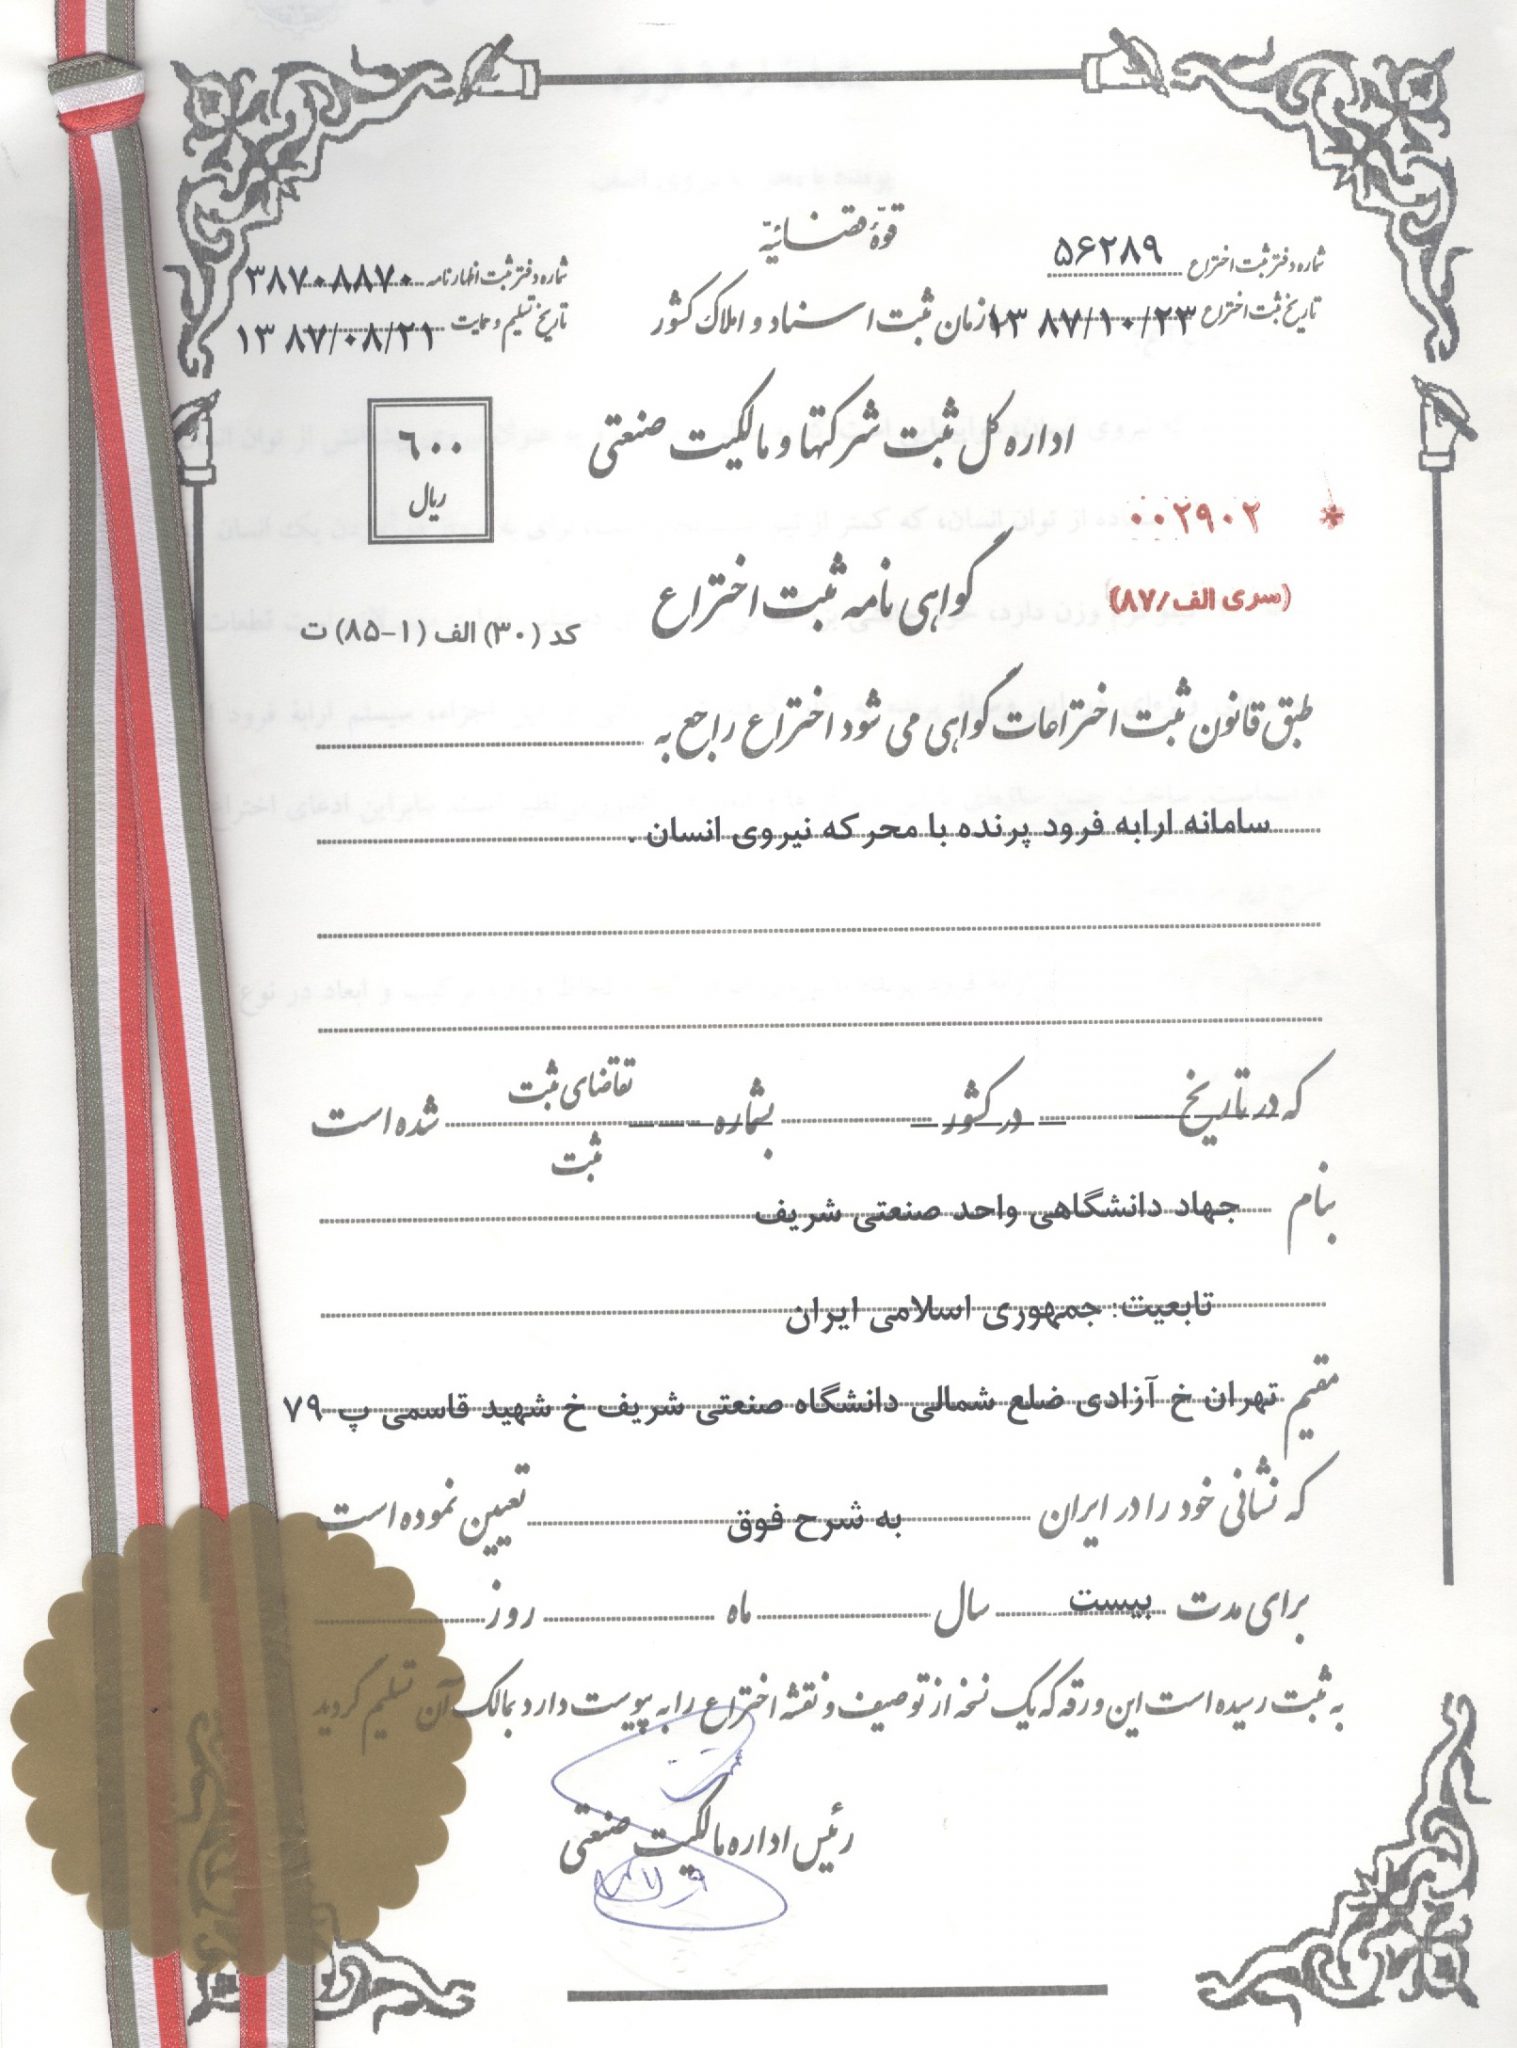 قوّهٔ قضائیّه
شماره دفتر ثبت اختراع ۵۶۲۸۹
شماره دفتر ثبت اظهارنامه ۳۸۷۰۸۸۷۰
سازمان ثبت اسناد و املاک کشور
تاریخ ثبت اختراع ۱۳۸۷/۱۰/۲۳
تاریخ تسلیم و حمایت ۱۳۸۷/۰۸/۲۱
اداره کل ثبت شرکتها و مالکیت صنعتی
۶۰۰
ریال
* ۰۰۲۹۰۲
(سری الف/۸۷)
گواهی نامه ثبت اختراع
کد (۳۰) الف (۱-۸۵) ت
طبق قانون ثبت اختراعات گواهی می شود اختراع راجع به
سامانه ارابه فرود پرنده با محرکه نیروی انسان .
که در تاریخ در کشور بشماره تقاضای ثبت شده است
ثبت
بنام جهاد دانشگاهی واحد صنعتی شریف
تابعیت: جمهوری اسلامی ایران
مقیم تهران خ آزادی ضلع شمالی دانشگاه صنعتی شریف خ شهید قاسمی پ ۷۹
که نشانی خود را در ایران به شرح فوق تعیین نموده است
برای مدت بیست سال ماه روز
به ثبت رسیده است این ورقه که یک نسخه از توصیف و نقشه اختراع را به پیوست دارد بمالک آن تسلیم گردید
رئیس اداره مالکیت صنعتی